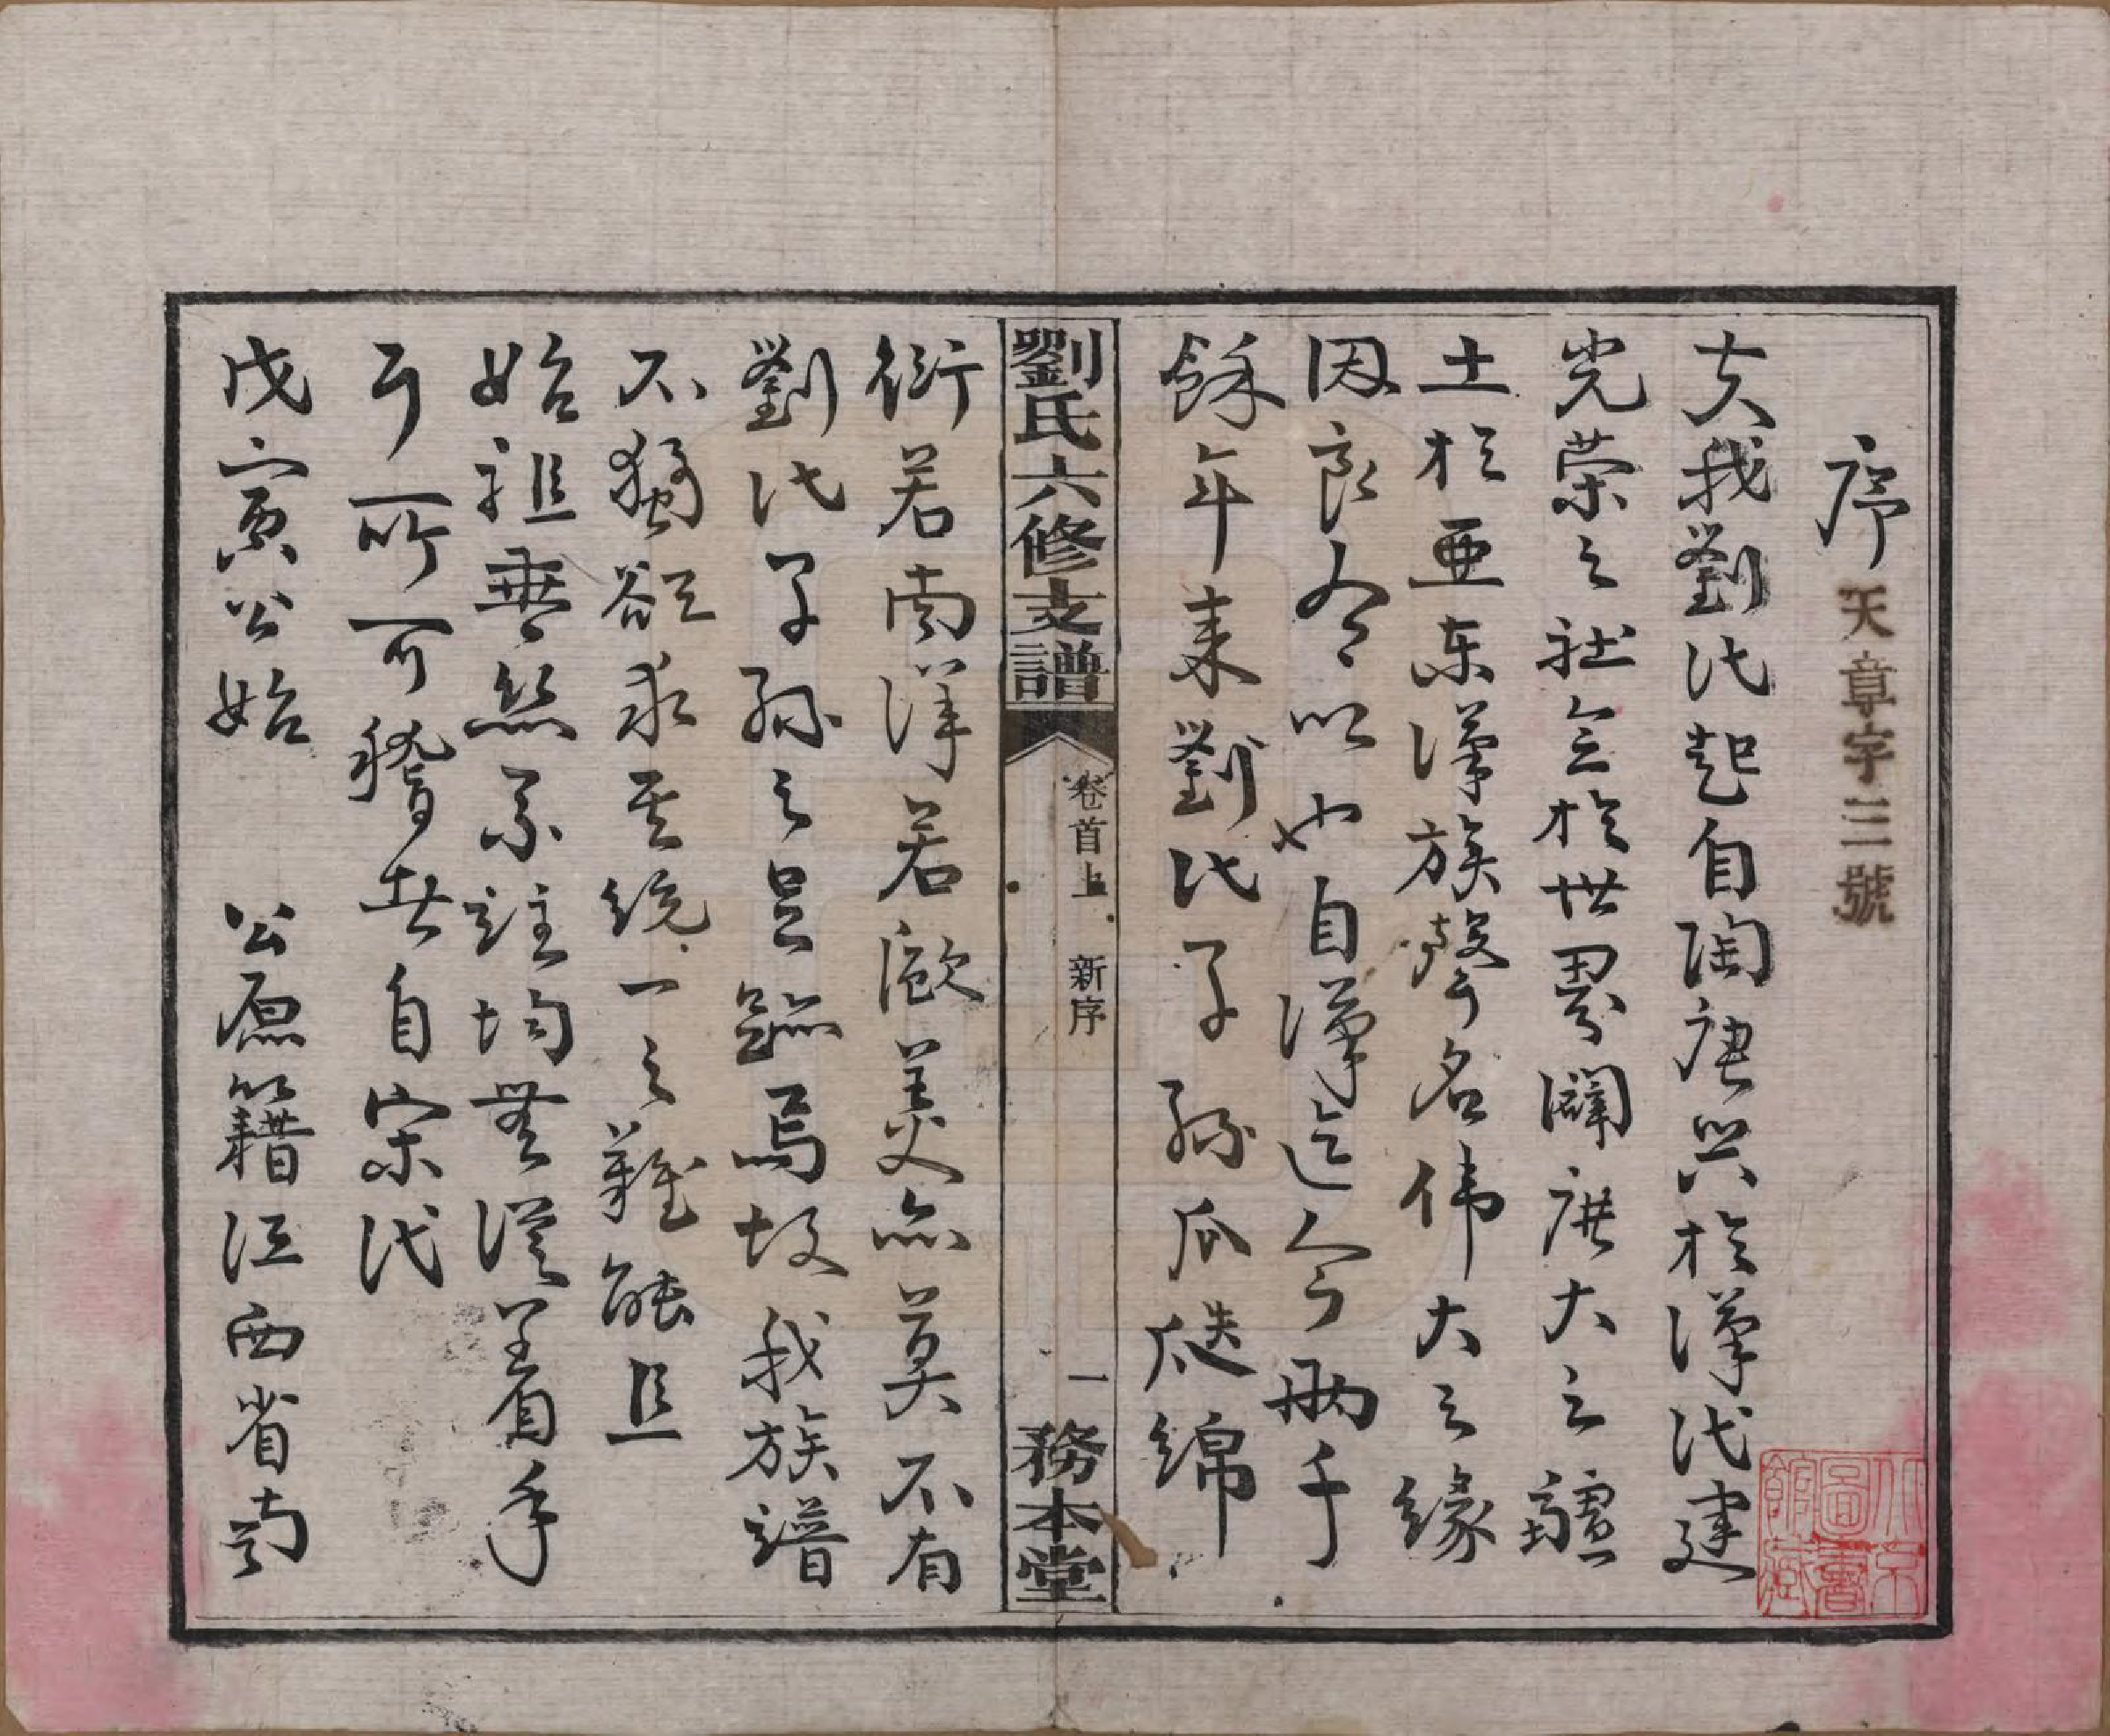 序
天章字三號
夫我劉氏起自陶唐興於漢代建
光榮之社會於世界闢庶大之疆
土於亜东漢族聲名伟大之缘
因良有以也自漢迄今兩千
餘年来劉氏子孫瓜瓞綿
劉氏六修支譜
卷首上 新序
一
務本堂
衍若南洋若歐美亦莫不有
劉氏子孫之足跡焉故我族譜
不獨欲求其統一之難能且
始祖垂絲系註均無從着手
了所可稽者自宋代
戊寅公始 公原籍江西省南
北京圖書館藏